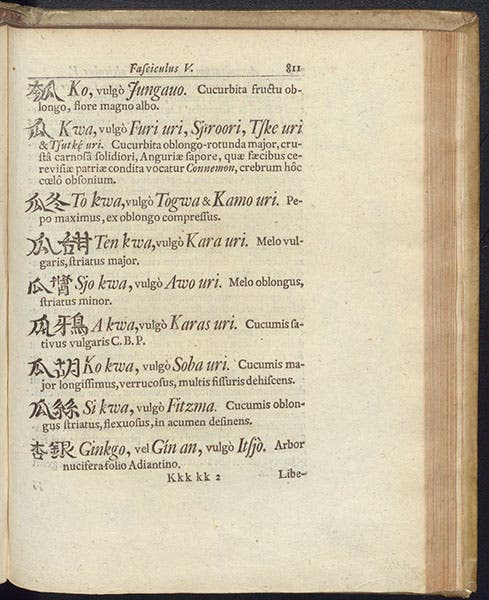 Fasciculus V. 811
瓠 Ko, vulgò Jungauo. Cucurbita fructu ob-
longo, flore magno albo.
Kwa, vulgò Furi uri, Sjroori, Tſke uri
& Tſutké uri. Cucurbita oblongo-rotunda major, cru-
ſtâ carnoſâ ſolidiori, Anguriæ ſapore, quæ fæcibus ce-
reviſiæ patriæ condita vocatur Connemon, crebrum hôc
cœlô obſonium.
瓜冬 To kwa, vulgò Togwa & Kamo uri. Pe-
po maximus, ex oblongo compreſſus.
瓜甜 Ten kwa, vulgò Kara uri. Melo vul-
garis, ſtriatus major.
瓜 Sjo kwa, vulgò Awo uri. Melo oblongus,
ſtriatus minor.
瓜牙鴉 A kwa, vulgò Karas uri. Cucumis ſa-
tivus vulgaris C. B. P.
瓜胡 Ko kwa, vulgò Soba uri. Cucumis ma-
jor longiſſimus, verrucoſus, multis fiſſuris dehiſcens.
瓜絲 Si kwa, vulgò Fitzma. Cucumis oblon-
gus ſtriatus, flexuoſus, in acumen deſinens.
杏銀 Ginkgo, vel Gin an, vulgò Itſjò. Arbor
nucifera folio Adiantino.
Kkk kk 2 Libe-